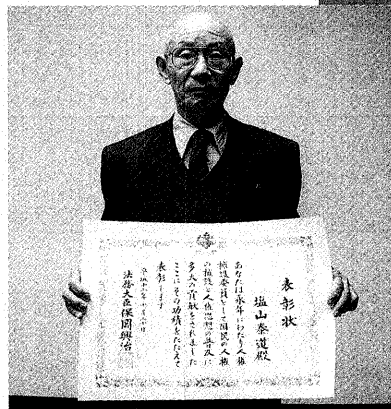 表彰状
塩山泰道殿
あなたは永年にわたり人権
擁護委員として国民の人権
の擁護と人権思想の普及に
多大の貢献をされました
ここにその功績をたたえて
表彰します
法務大臣保岡興治